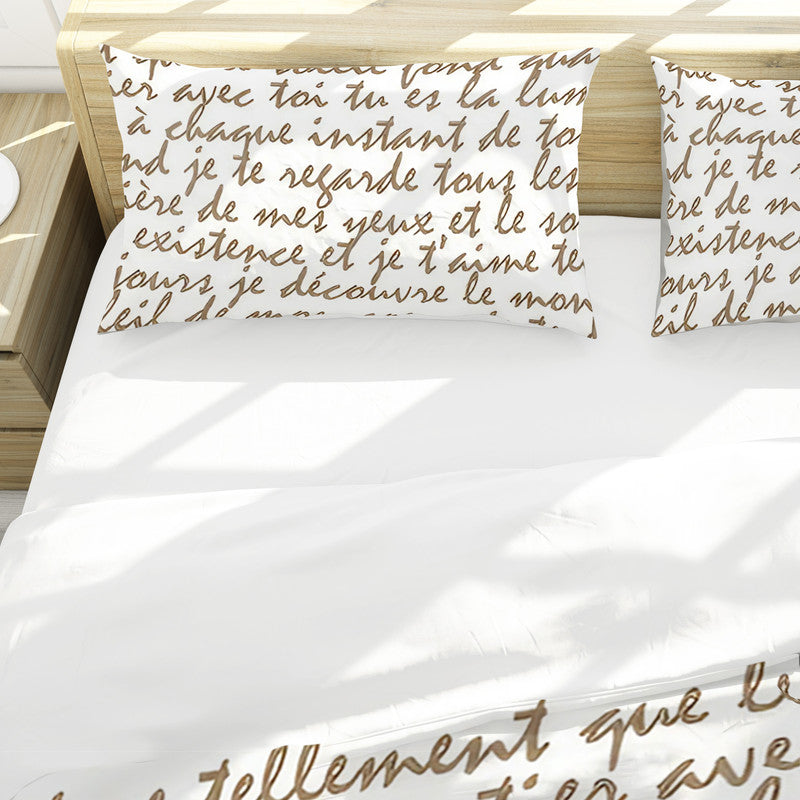 que le soleil fond qua
ier avec toi tu es la lum
à chaque instant de to
nd je te regarde tous les
ière de mes yeux et le so
existence et je t'aime te
jours je découvre le mon
leil de mon
que le s
er avec t
à chaque
nd je te r
ère de m
existence
ours je d
eil de m
tellement que le
tier avec